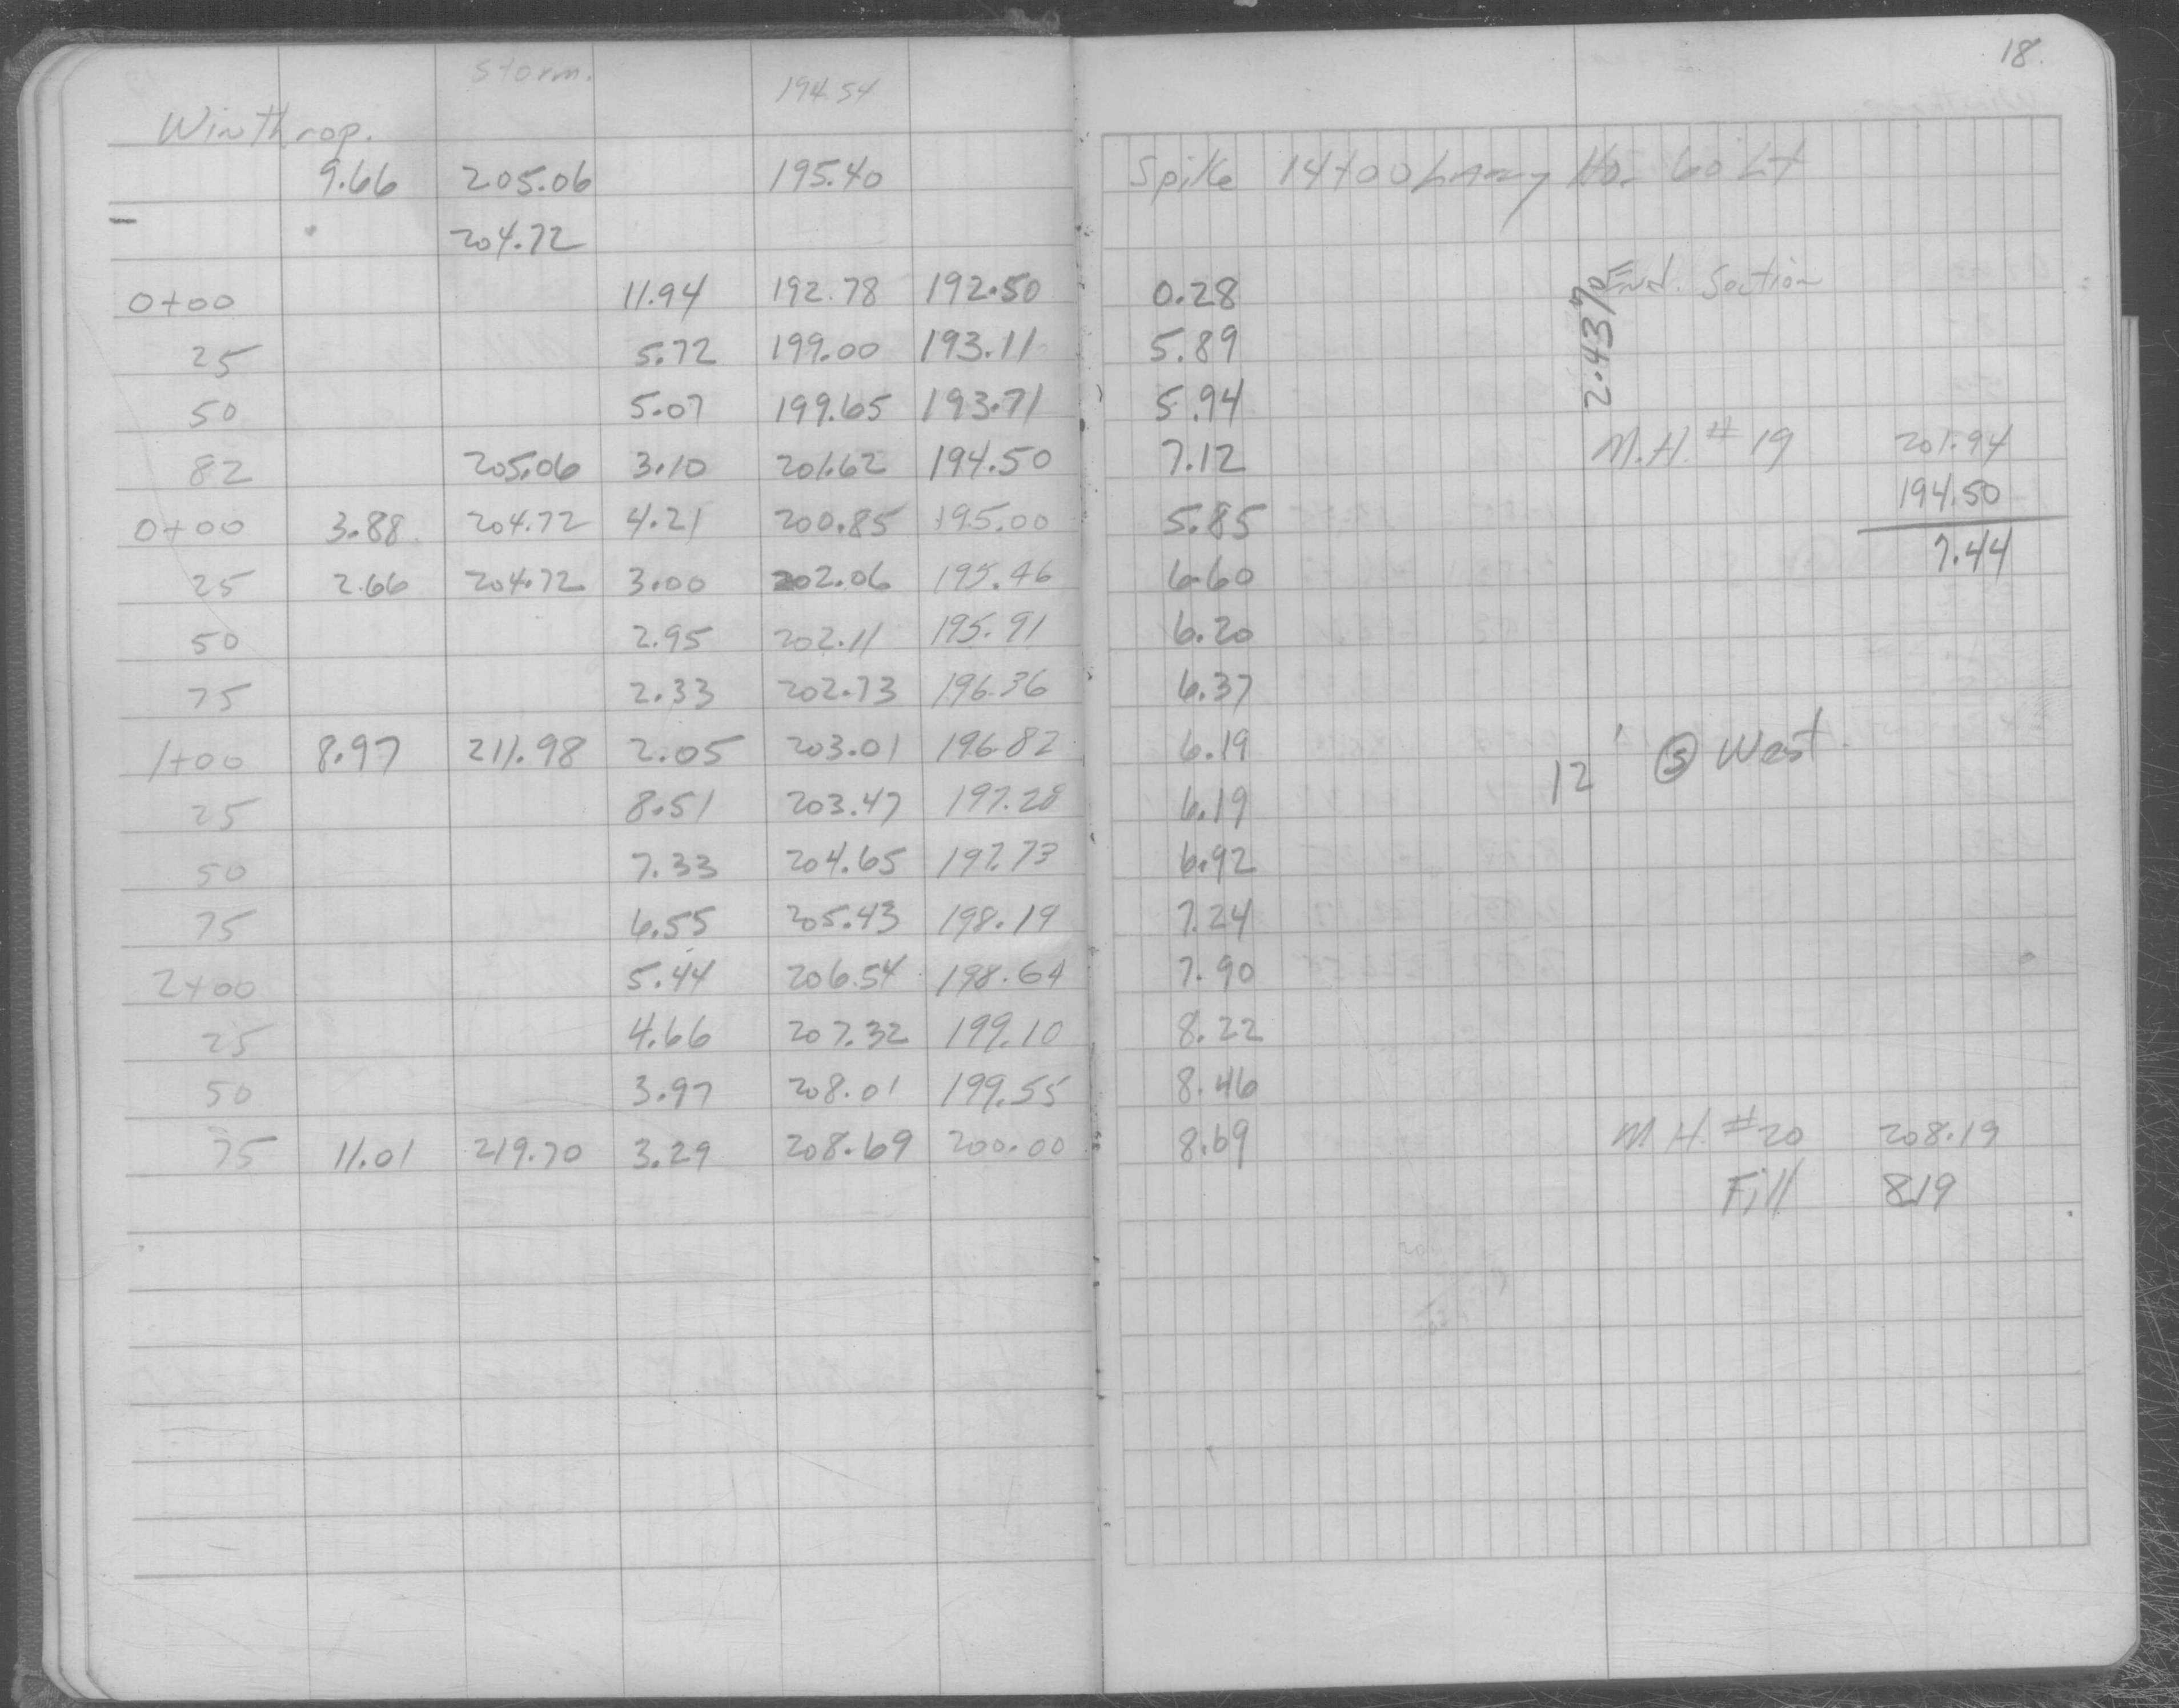 18.
Storm. 194.54
Winthrop.
9.66 205.06 195.40 Spike 14+00 60 Lt
204.72
0+00 11.94 192.78 192.50 0.28 End. Section
25 5.72 199.00 193.11 5.89 2.43%
50 5.07 199.65 193.71 5.94
82 205.06 3.10 201.62 194.50 7.12 M.H. # 19 201.94
194.50
0+00 3.88 204.72 4.21 200.85 195.00 5.85
7.44
25 2.66 204.72 3.00 202.06 195.46 6.60
50 2.95 202.11 195.91 6.20
75 2.33 202.73 196.36 6.37
1+00 8.97 211.98 2.05 203.01 196.82 6.19 12' (S) West
25 8.51 203.47 197.28 6.19
50 7.33 204.65 197.73 6.92
75 6.55 205.43 198.19 7.24
2+00 5.44 206.54 198.64 7.90
25 4.66 207.32 199.10 8.22
50 3.97 208.01 199.55 8.46
75 11.01 219.70 3.29 208.69 200.00 8.69 M.H. #20 208.19
Fill 8.19